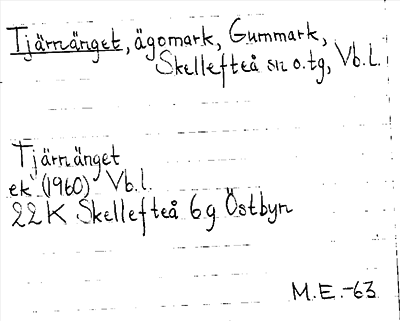 Tjärnänget, ägomark, Gummark,
Skellefteå sn o. tg, Vb.l.
Tjärnänget
ek (1960) Vb.l.
22K Skellefteå 6g Östbyn
M.E.-63